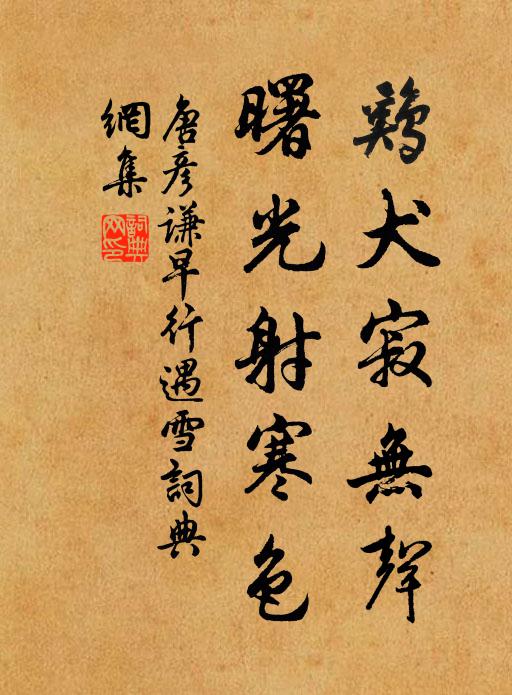 鷄犬寂無聲
曙光射寒色
唐彥謙早行遇雪詞典
網集
詞典網印